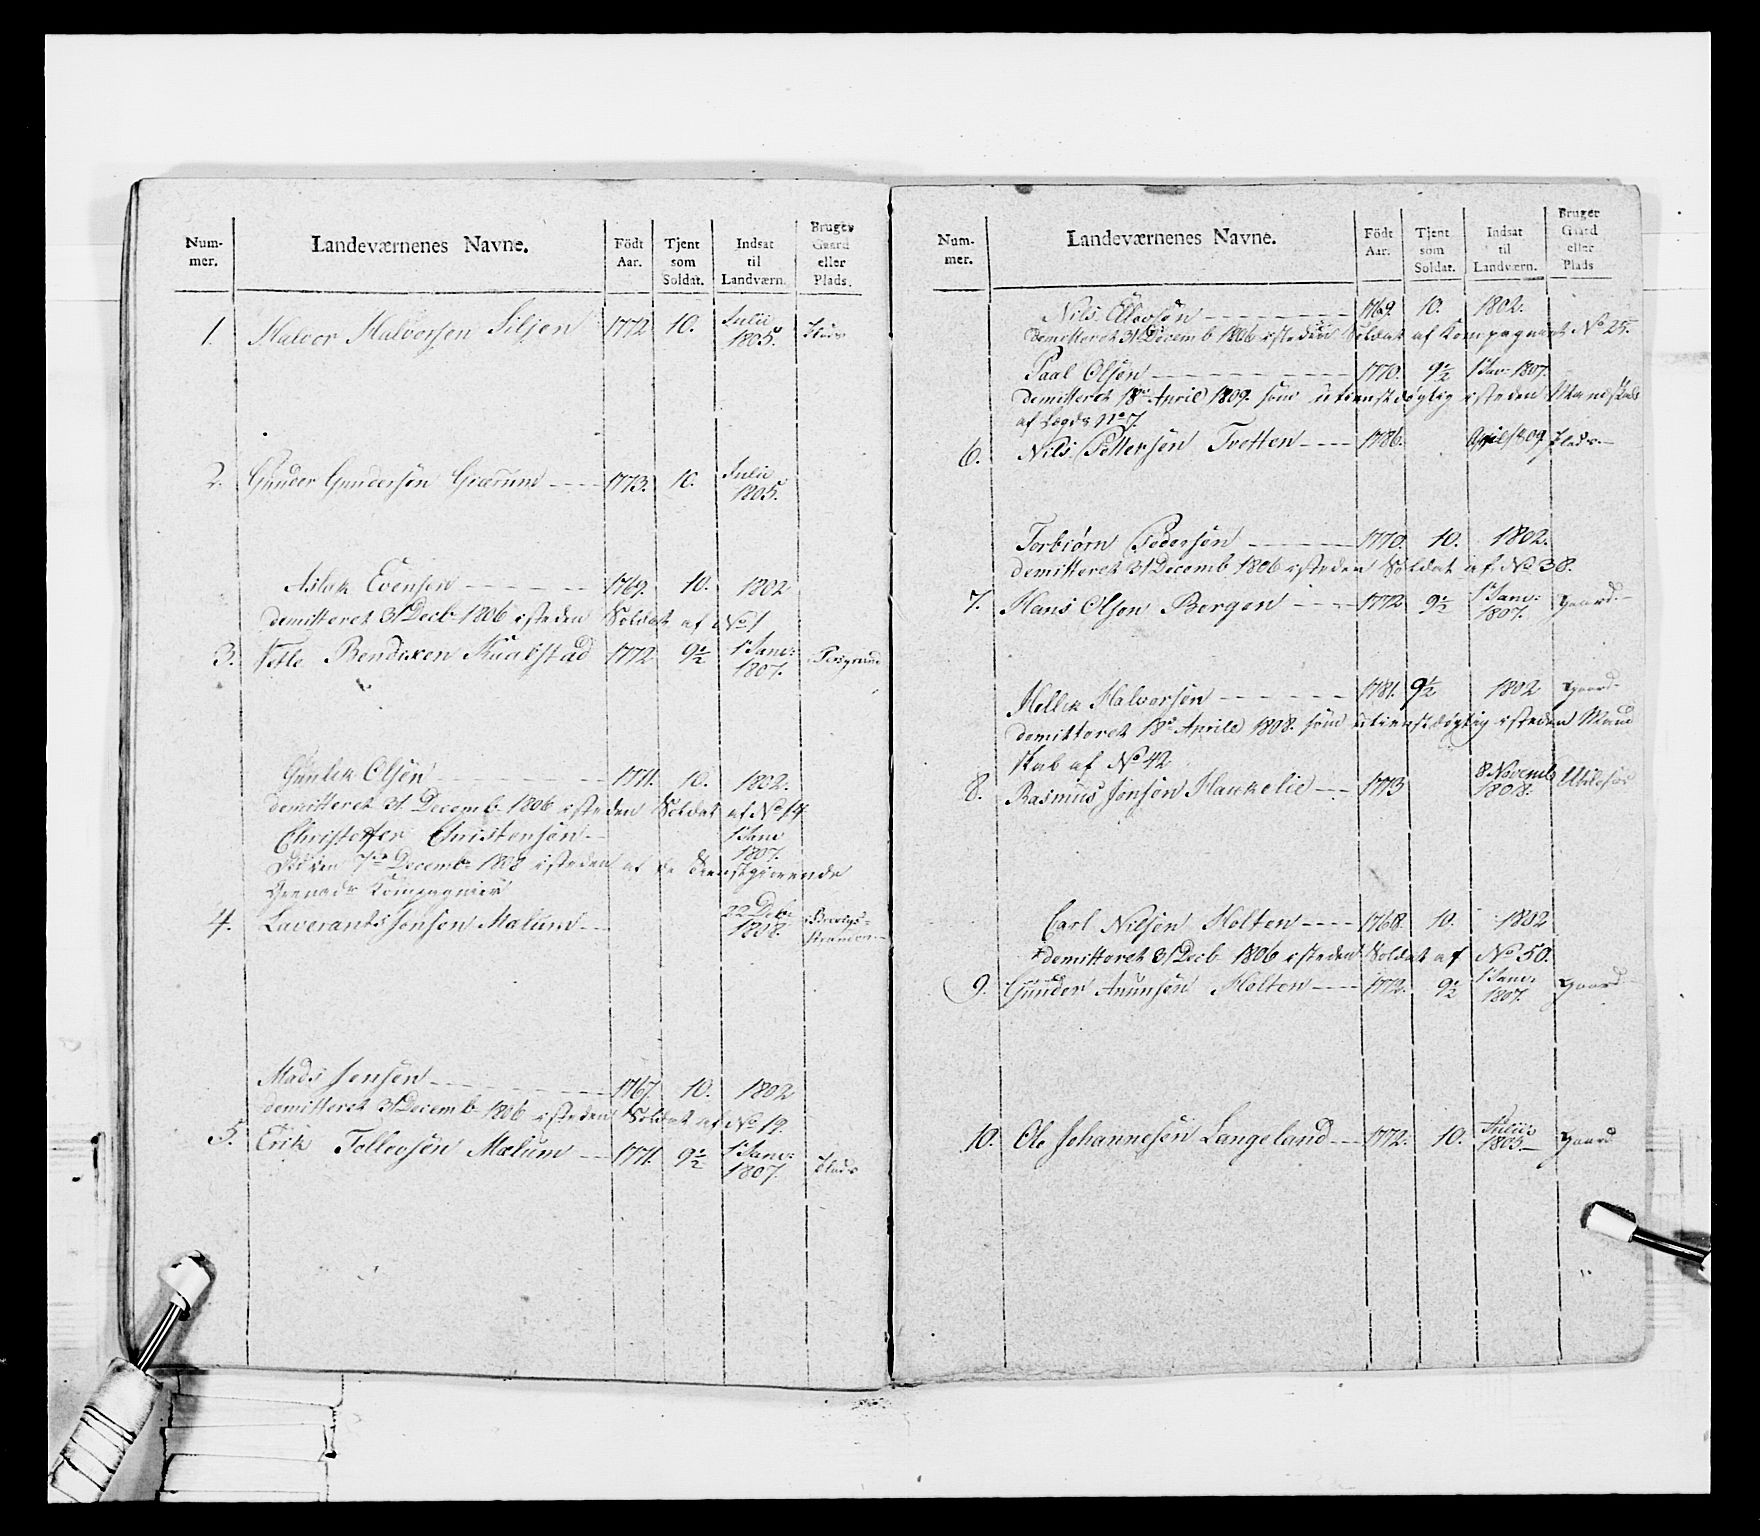 Num-
mer.
Landeværnenes Navne.
Födt
Aar.
Tjent
som
Soldat.
Indsat
til
Landværn.
Bruger
Gaard
eller
Plads.
1. Halvor Halvorsen Siljen 1772 10. Julii 1805. Plads
2. Gunder Gundersøn Gierum 1773. 10. Julii 1805.
Aslak Evensen 1769. 10. 1802
demitteret 31 Decb 1806 isteden Soldat af No 1
3. Bendixen 1772 9½ 1 Janv: 1807.
Gunlek Olsøn 1771. 10. 1802.
demitteret 31. Decemb. 1806 isteden Soldat af No 14.
Christoffer Christensøn 1 Janv 1807.
Decemb. 1808 isteden af de dienstgiørende
Compagnier
4. Laverants Jonsøn Mælum 22 Decb 1808. Brevigs-
stranden
Mads Jensøn 1767. 10. 1802
demitteret 31 Decemb 1806 isteden Soldat af No 19.
5. Erik Tollevsøn Mælum 1771. 9½ 1 Janv: 1807. Plads
Num-
mer.
Landeværnenes Navne.
Födt
Aar.
Tjent
som
Soldat.
Indsat
til
Landværn.
Bruger
Gaard
eller
Plads
Nils 1769. 10. 1802.
demitteret 31 Decemb 1806 isteden Soldat af Compagniet No 25.
Paal Olsøn 1770. 9½ 1 Jan: 1807.
demitteret 18de April 1809. som utienstdygtig isteden Mandskab
af Lægd No 7.
6. Nils Pettersøn Tvetten 1786. April 1809 Plads
Torbiørn Pedersøn 1770. 10. 1802.
demitteret 31 Decemb 1806 isteden Soldat af No 38.
7. Hans Olsøn Bergan 1772 9½ 1 Janv: 1807. Gaard
Hellik Halvorsøn 1781. 9½ 1802 Gaard
demitteret 18de Aprile 1808. som utienstdygtig isteden Mand
skab af No 42
8. Rasmus Jonsøn Haukelie 1773 8 Novemb 1808.
Carl Nilsøn Holten 1768. 10. 1802
demitteret 31 Decb 1806 isteden Soldat af No 50.
9. Gunder Anunsøn Holten 1772. 9½ 1 Janv: 1807. Gaard
10. Ole Johannesøn Langeland 1772. 10. Julii 1805. Gaard